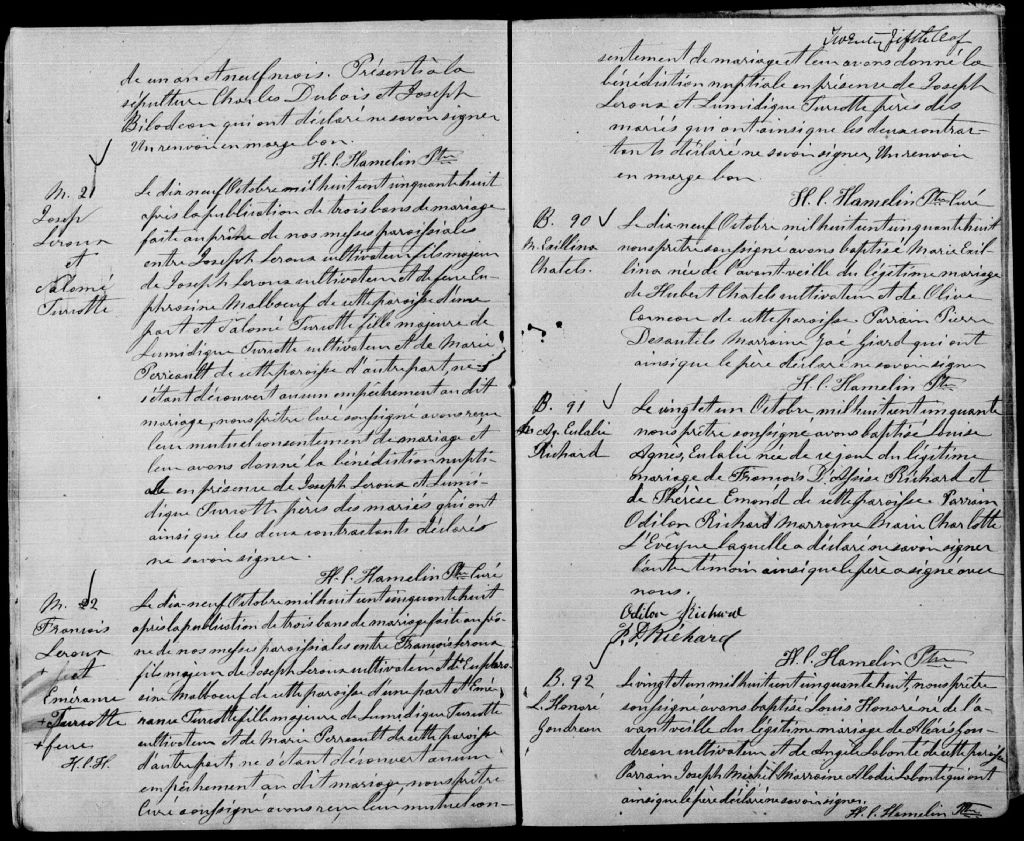 de un an et neuf mois. Présent à la
sépulture Charles Dubois et Joseph
Bilodeau qui ont déclaré ne savoir signer
Un renvoi en marge bon.
H. C. Hamelin Ptre
M. 21
Josep
Leroux
et
Salomé
Turcotte
Le dix neuf Octobre mil huit cent cinquante huit
après la publication de trois bans de mariage
faite au prône de nos messes paroissiales
entre Joseph Leroux cultivateur fils majeur
de Joseph Leroux cultivateur et de feue Eu-
phrosine Malboeuf de cette paroisse d'une
part et Salomé Turcotte fille majeure de
Lumidique Turcotte cultivateur et de Marie
Perreault de cette paroisse d'autre part, ne
s'étant découvert aucun empêchement au dit
mariage, nous prêtre Curé soussigné avons reçu
leur mutuel consentement de mariage et
leur avons donné la bénédiction nupti-
ale en présence de Joseph Leroux et Lumi-
dique Turcotte pères des mariés qui ont
ainsi que les deux contractants déclarés
ne savoir signer.
H. C. Hamelin Ptre Curé
M. 22
François
Leroux
+ et
Emérance
+ Turcotte
+ feue
H. C. H.
Le dix-neuf Octobre mil huit cent cinquante huit
après la publication de trois bans de mariage faite au prô-
ne de nos messes paroissiales entre François Leroux
fils majeur de Joseph Leroux cultivateur et de + Euphro-
sine Malboeuf de cette paroisse d'une part et Emé-
rance Turcotte fille majeure de Lumidique Turcotte
cultivateur et de Marie Perreault de cette paroisse
d'autre part, ne s'étant découvert aucun
empêchement au dit mariage, nous prêtre
Curé soussigné avons reçu leur mutuel con-
Twenty fifth leaf
sentement de mariage et leur avons donné la
bénédiction nuptiale en présence de Joseph
Leroux et Lumidique Turcotte pères des
mariés qui ont ainsi que les deux contrac-
tants déclaré ne savoir signer, Un renvoi
en marge bon.
H. C. Hamelin Ptre Curé
B. 90
M. Exillina
Chatels.
Le dix neuf Octobre mil huit cent cinquante huit
nous prêtre soussigné avons baptisé Marie Exil-
lina née de l'avant veille du légitime mariage
de Hubert Chatels cultivateur et de Olive
Corneau de cette paroisse Parrain Pierre
Desautels Marraine Zoé Giard qui ont
ainsi que le père déclaré ne savoir signer
H. C. Hamelin Ptre
B. 91
Ag. Eulalie
Richard
Le vingt et un Octobre mil huit cent cinquante
nous prêtre soussigné avons baptisé Louise
Agnès, Eulalie née de ce jour du légitime
mariage de François D'Assise Richard et
de Thérèse Emond de cette paroisse Parrain
Odilon Richard Marraine Marie Charlotte
L'Evêque laquelle a déclaré ne savoir signer
l'autre témoin ainsi que le père a signé avec
nous.
Odilon Richard
F. D. Richard
H. C. Hamelin Ptre
B. 92
L. Honoré
Gendreau
Le vingt et un mil huit cent cinquante huit, nous prêtre
soussigné avons baptisé Louis Honoré né de l'a-
vant veille du légitime mariage de Alexis Gen-
dreau cultivateur et de Angèle Labonté de cette paroisse
Parrain Joseph Michel Marraine Alodie Labonté qui ont
ainsi que le père déclaré ne savoir signer.
H. C. Hamelin Ptre